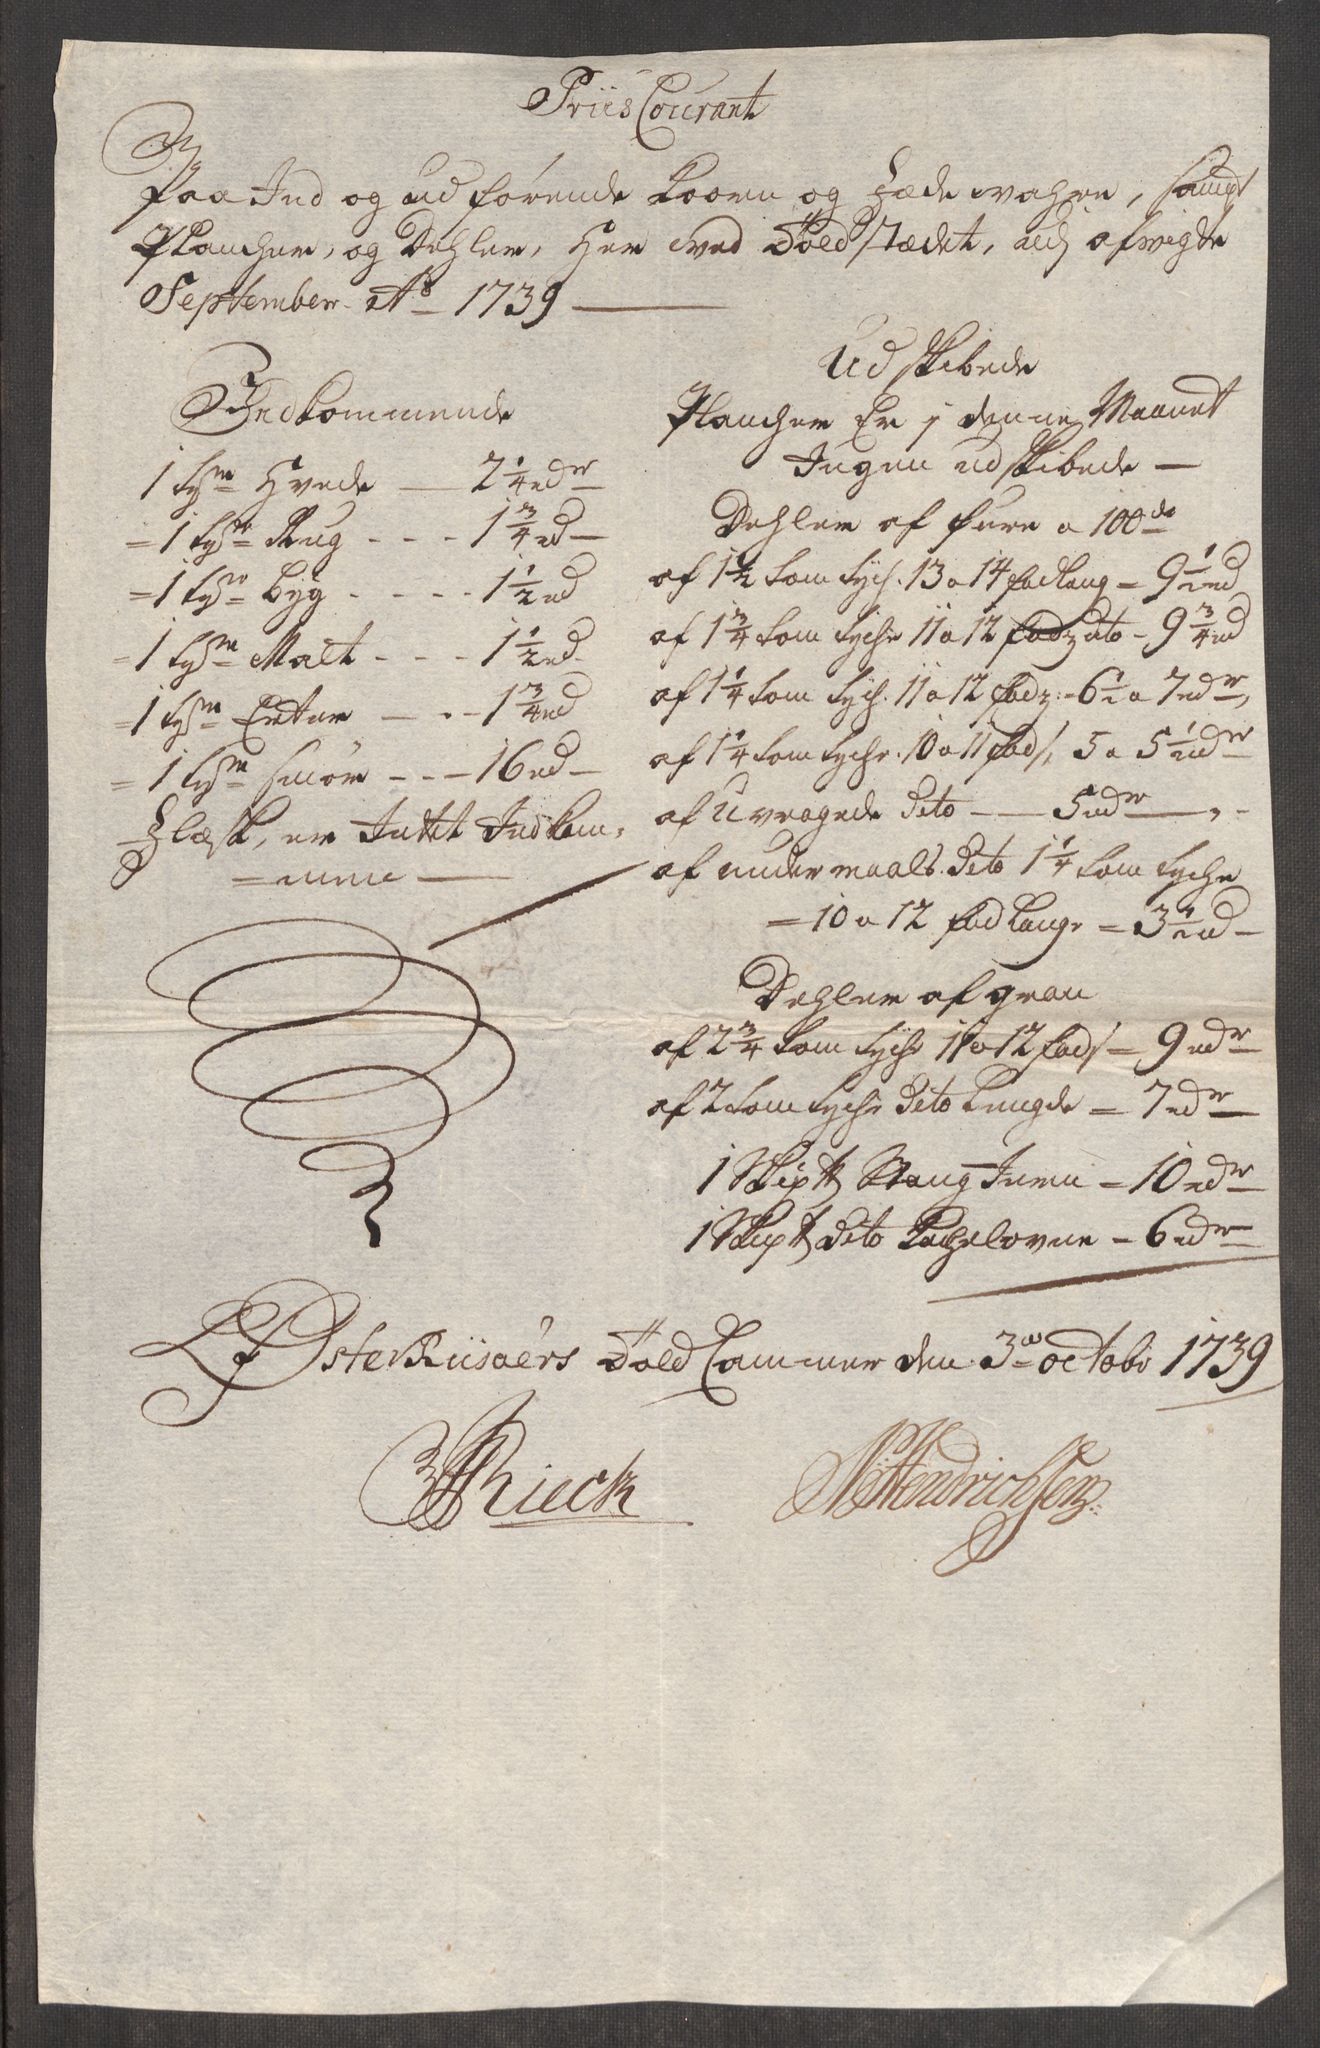 Priis Courant
Paa Ind og udførende Koorn og Fæde wahre, sampt
Plancher, og Dehler, Her wed Toldstædet, udj afwigte
September Ao 1739
Indkommende
1 tye Hvede 2 1/4 rdr
= 1 tye Rug - - - 1 3/4 rd
= 1 tye Byg - - - - 1 1/2 rd
= 1 tye Malt - - - 1 1/2 rd
= 1 tye Erter - - - 1 3/4 rd
= 1 tye Smør - - - 16 rd
Flæsk, er Intet Indkom-
= mme
Udskibede
Plancher Er j denne Maanet
Ingen udskibede
Dehler af fure a 100de
af 1 1/2 tom tych. 13 a 14 fod lang = 9 1/2 rd
af 1 3/4 tom tyche 11 a 12 fodz dto - 9 3/4 rd
af 1 1/4 tom tych. 11 a 12 fodz - 6 1/2 a 7 rdr
af 1 1/4 tom tyche. 10 a 11 fods, 5 a 5 1/2 rdr
af Uvragede Dito 5 rdr
af under maals Dito 1 1/4 tom tyche
= 10 a 12 fod lange = 3 1/2 rd
Dehler af gran
af 2 3/4 tom tyche 11 a 12 fods = 9 rdr
af 2 tom tyche Dito Lengde = 7 rdr
1 Skip ℔ Stang Jern = 10 rdr
1 Skip ℔ Dito Kachelovne = 6 rdr
Østerriisøers Told Cammer den 3die octobr 1739
Rieck
Hendrichsen